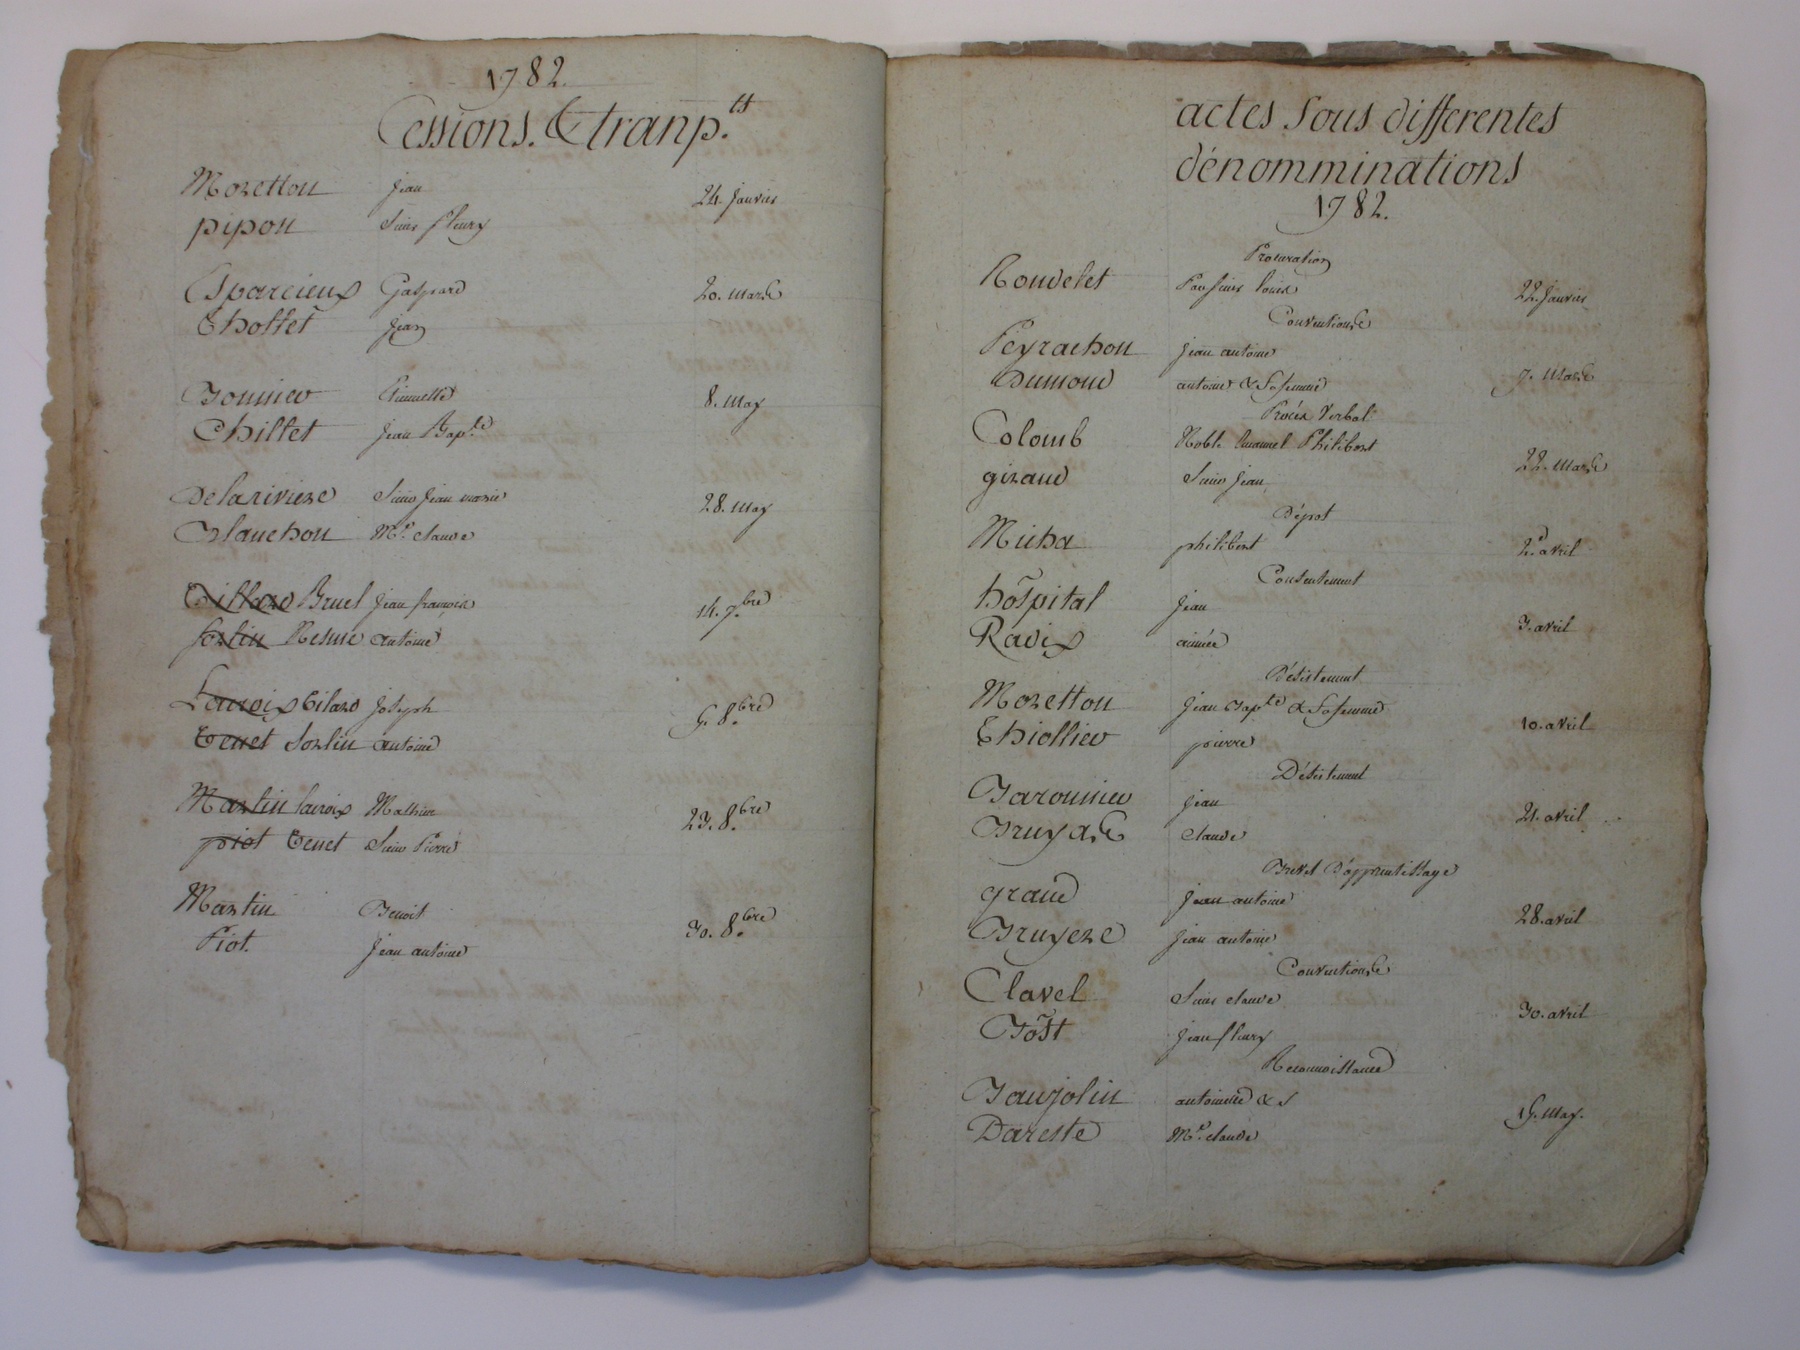 1782.
Cessions. & tranp.ts
Moretton jean
24. janvier
pipon Sieur fleury
Esparcieux Gaspard 20. mars
Thollet jean
Bonnier Pierrette 8. may
Chillet jean Bap.te
Delariviere Sieur jean marie 28. may
Blanchon M.e claude
Tillard Bruel jean françois 14. 7.bre
Sorlin Resme antoine
Lacroix Tilard joseph 5. 8.bre
Tenet Sorlin antoine
Martin lacroix Mathieu 23. 8.bre
piot Tenet Sieur Pierre
Martin Benoit 30. 8.bre
Piot. jean antoine
actes Sous differentes
dénomminations
1782.
Procuration
Rondelet Par Sieur louis 22. janvier
Conventions
Peyrachon jean antoine
Dumond antoine & Sa femme 7. mars
Procés Verbal
Colomb Noble Emanuel Philibert
giraud Sieur jean 22. mars
Dépot
Micha philibert 2.d avril
Consentement
hospital jean
Ravix aimée 3. avril
Désistement
Moretton jean Bap.te & Sa femme
Thiollier pierre 10. avril
Désistement
Baronnier jean 21. avril
Bruyas claude
Brevet D'apprentissage
grand jean antoine 28. avril
Bruyere jean antoine
Conventions
Clavel Sieur claude 30. avril
Bost jean fleury
Reconnoissance
Baujolin antoinette & S
15. may.
Dareste M.e claude